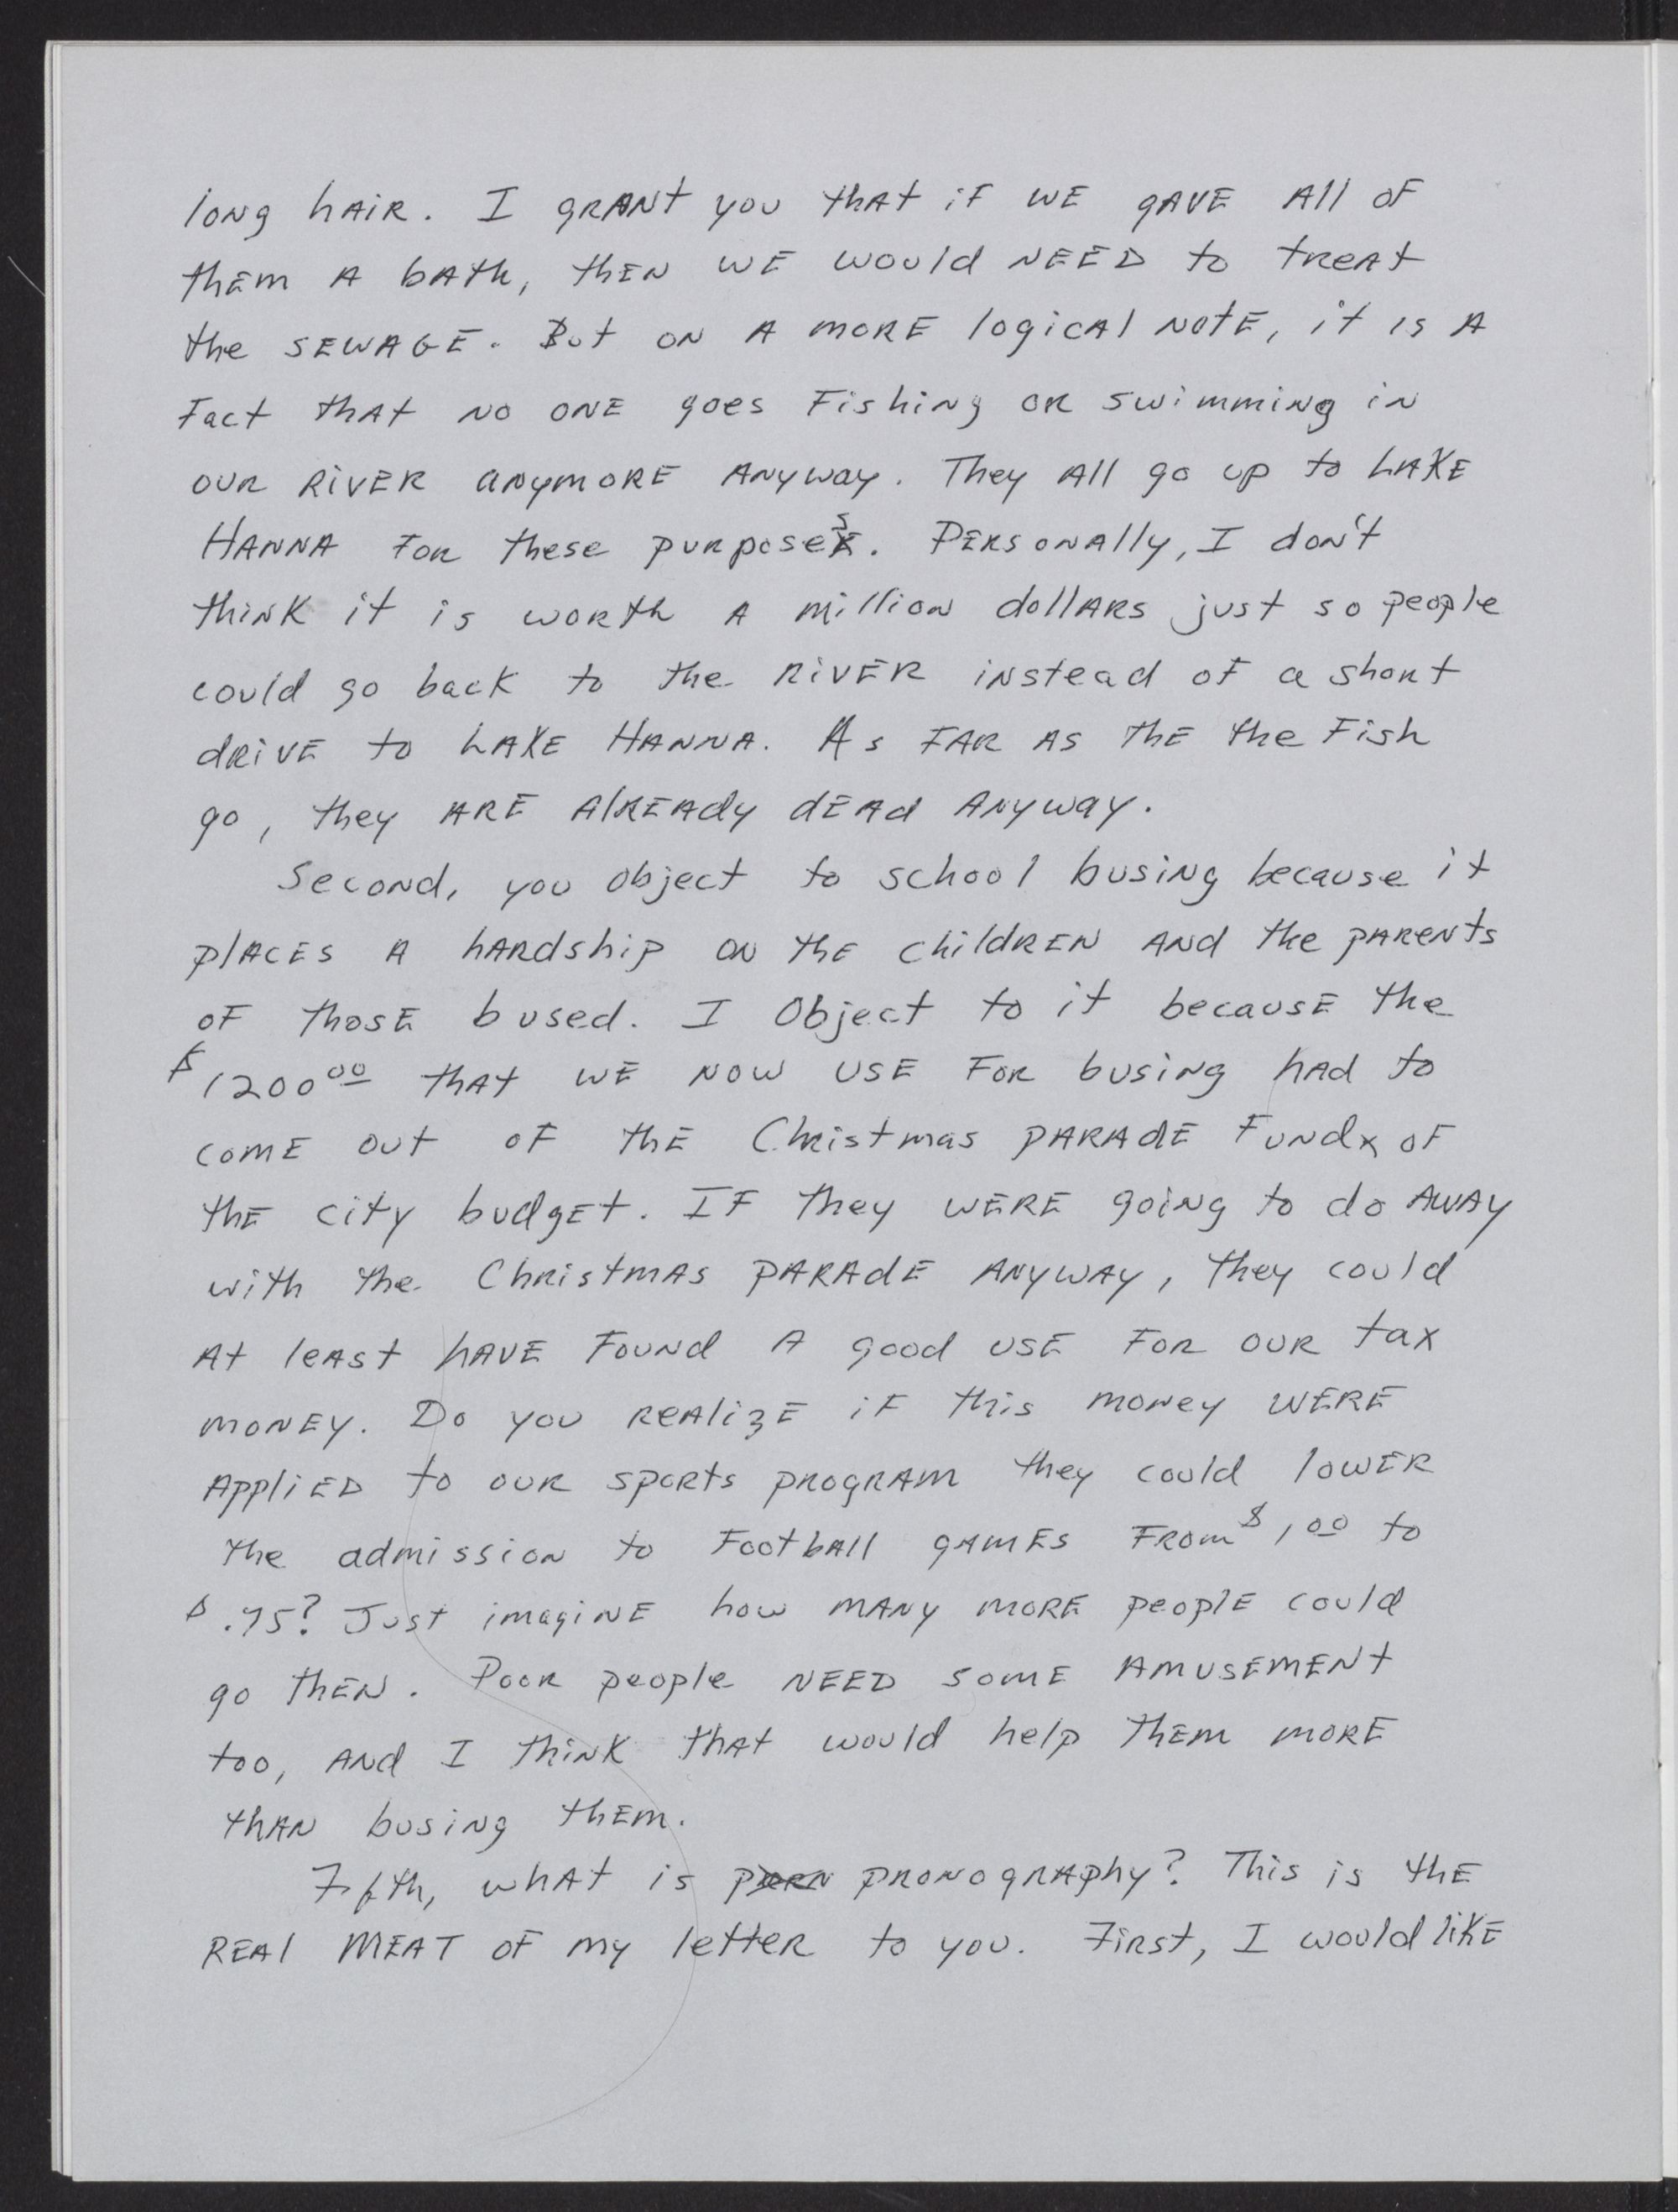 long hair. I grant you that if we gave all of
them a bath, then we would need to treat
the sewage. But on a more logical note, it is a
fact that no one goes fishing or swimming in
our river anymore anyway. They all go up to Lake
Hanna for these purposes. Personally, I don't
think it is worth a million dollars just so people
could go back to the river instead of a short
drive to Lake Hanna. As far as the the fish
go, they are already dead anyway.
Second, you object to school busing because it
places a hardship on the children and the parents
of those bused. I object to it because the
$1200.00 that we now use for busing had to
come out of the Christmas parade fund of
the city budget. If they were going to do away
with the Christmas parade anyway, they could
at least have found a good use for our tax
money. Do you realize if this money were
applied to our sports program they could lower
the admission to football games from $1.00 to
$.75? Just imagine how many more people could
go then. Poor people need some amusement
too, and I think that would help them more
than busing them.
Fifth, what is porn pronography? This is the
real meat of my letter to you. First, I would like